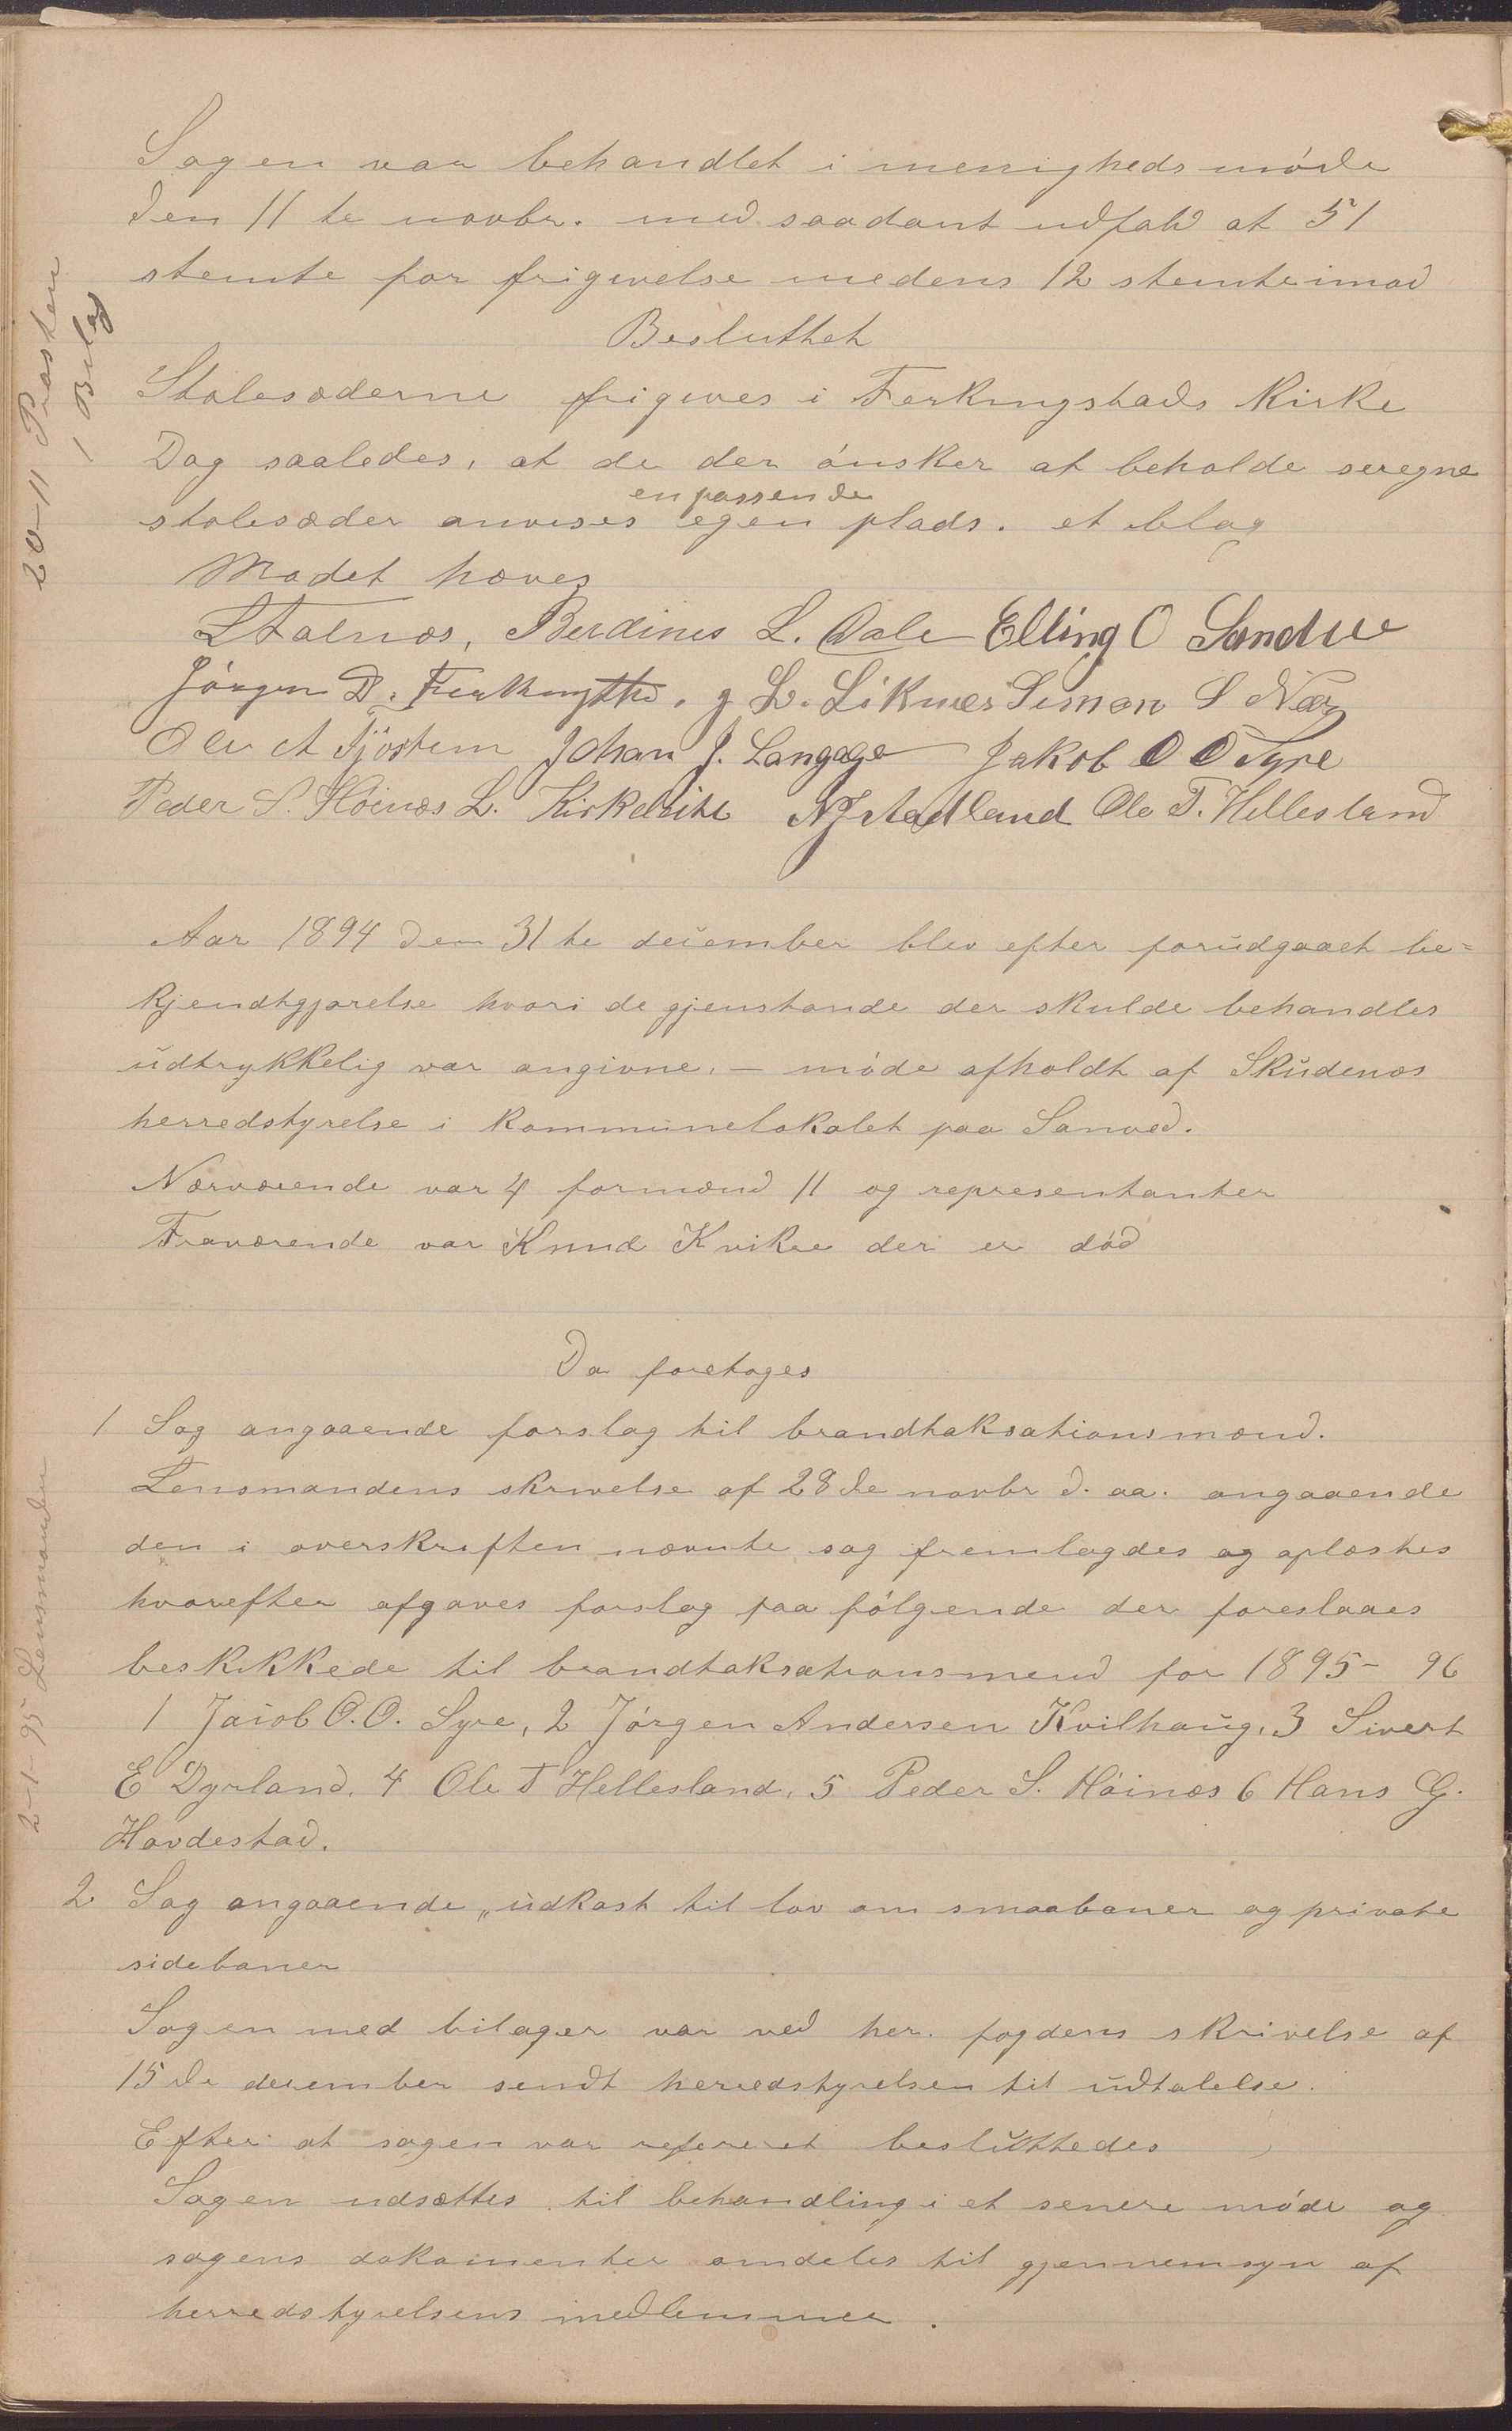 Sagen var behandlet i menighedsmøde
den 11te novbr. med saadant udfald at 51
stemte for frigivelse medens 12 stemte imod
Besluttet
Stolesæderne frigives i Ferkingstads Kirke
Dog saaledes, at de der ønsker at beholde seregne
en passende
stolesæder anvises egen plads. et blag
Mødet hæves
Stalnæs, Berdines L. Dale Elling O Sandve
Jørgen D. Ferkingstad, g L. Liknes Simon S Næs
Ole A Tjøstem Johan J. Langage Jakob O O Syre
Peder S. Høinæs L. Kirkeleite N Stadland Ole T. Hellesland
Aar 1894 den 31te december blev efter forudgaaet be=
kjendtgjørelse hvori de gjenstande der skulde behandles
udtrykkelig var angivne. – møde afholdt af Skudenæs
herredstyrelse i kommunelokalet paa Sanved.
Nærværende var 4 formænd 11 og representanter
Fraværende var Knud Kvikre der er død
Da foretoges
1 Sag angaaende forslag til brandtaksationsmænd.
Lensmandens skrivelse af 28de novbr d. aa. angaaende
den i overskriften nævnte sag fremlagdes og oplæstes
hvorefter afgaves forslag paa følgende der foreslaaes
beskikkede til brandtaksationsmend for 1895- 96
1 Jacob O.O. Syre, 2 Jørgen Andersen Kvilhaug, 3 Sivert
E Dyrland, 4 Ole T Hellesland, 5 Peder S. Høinæs 6 Hans G.
Hovdestad.
2 Sag angaaende „udkast til lov om smaabaner og private
sidebaner
Sagen med bilager var ved her. fogdens skrivelse af
15de december sendt herredstyrelsen til udtalelse.
Efter at sagen var refereret besluttedes
Sagen udsættes til behandling i et senere møde og
sagens dokumenter omdeles til gjennemsyn af
herredstyrelsens medlemmer.
20-11 Presten
1 Bilag
2-1-95 Lensmanden